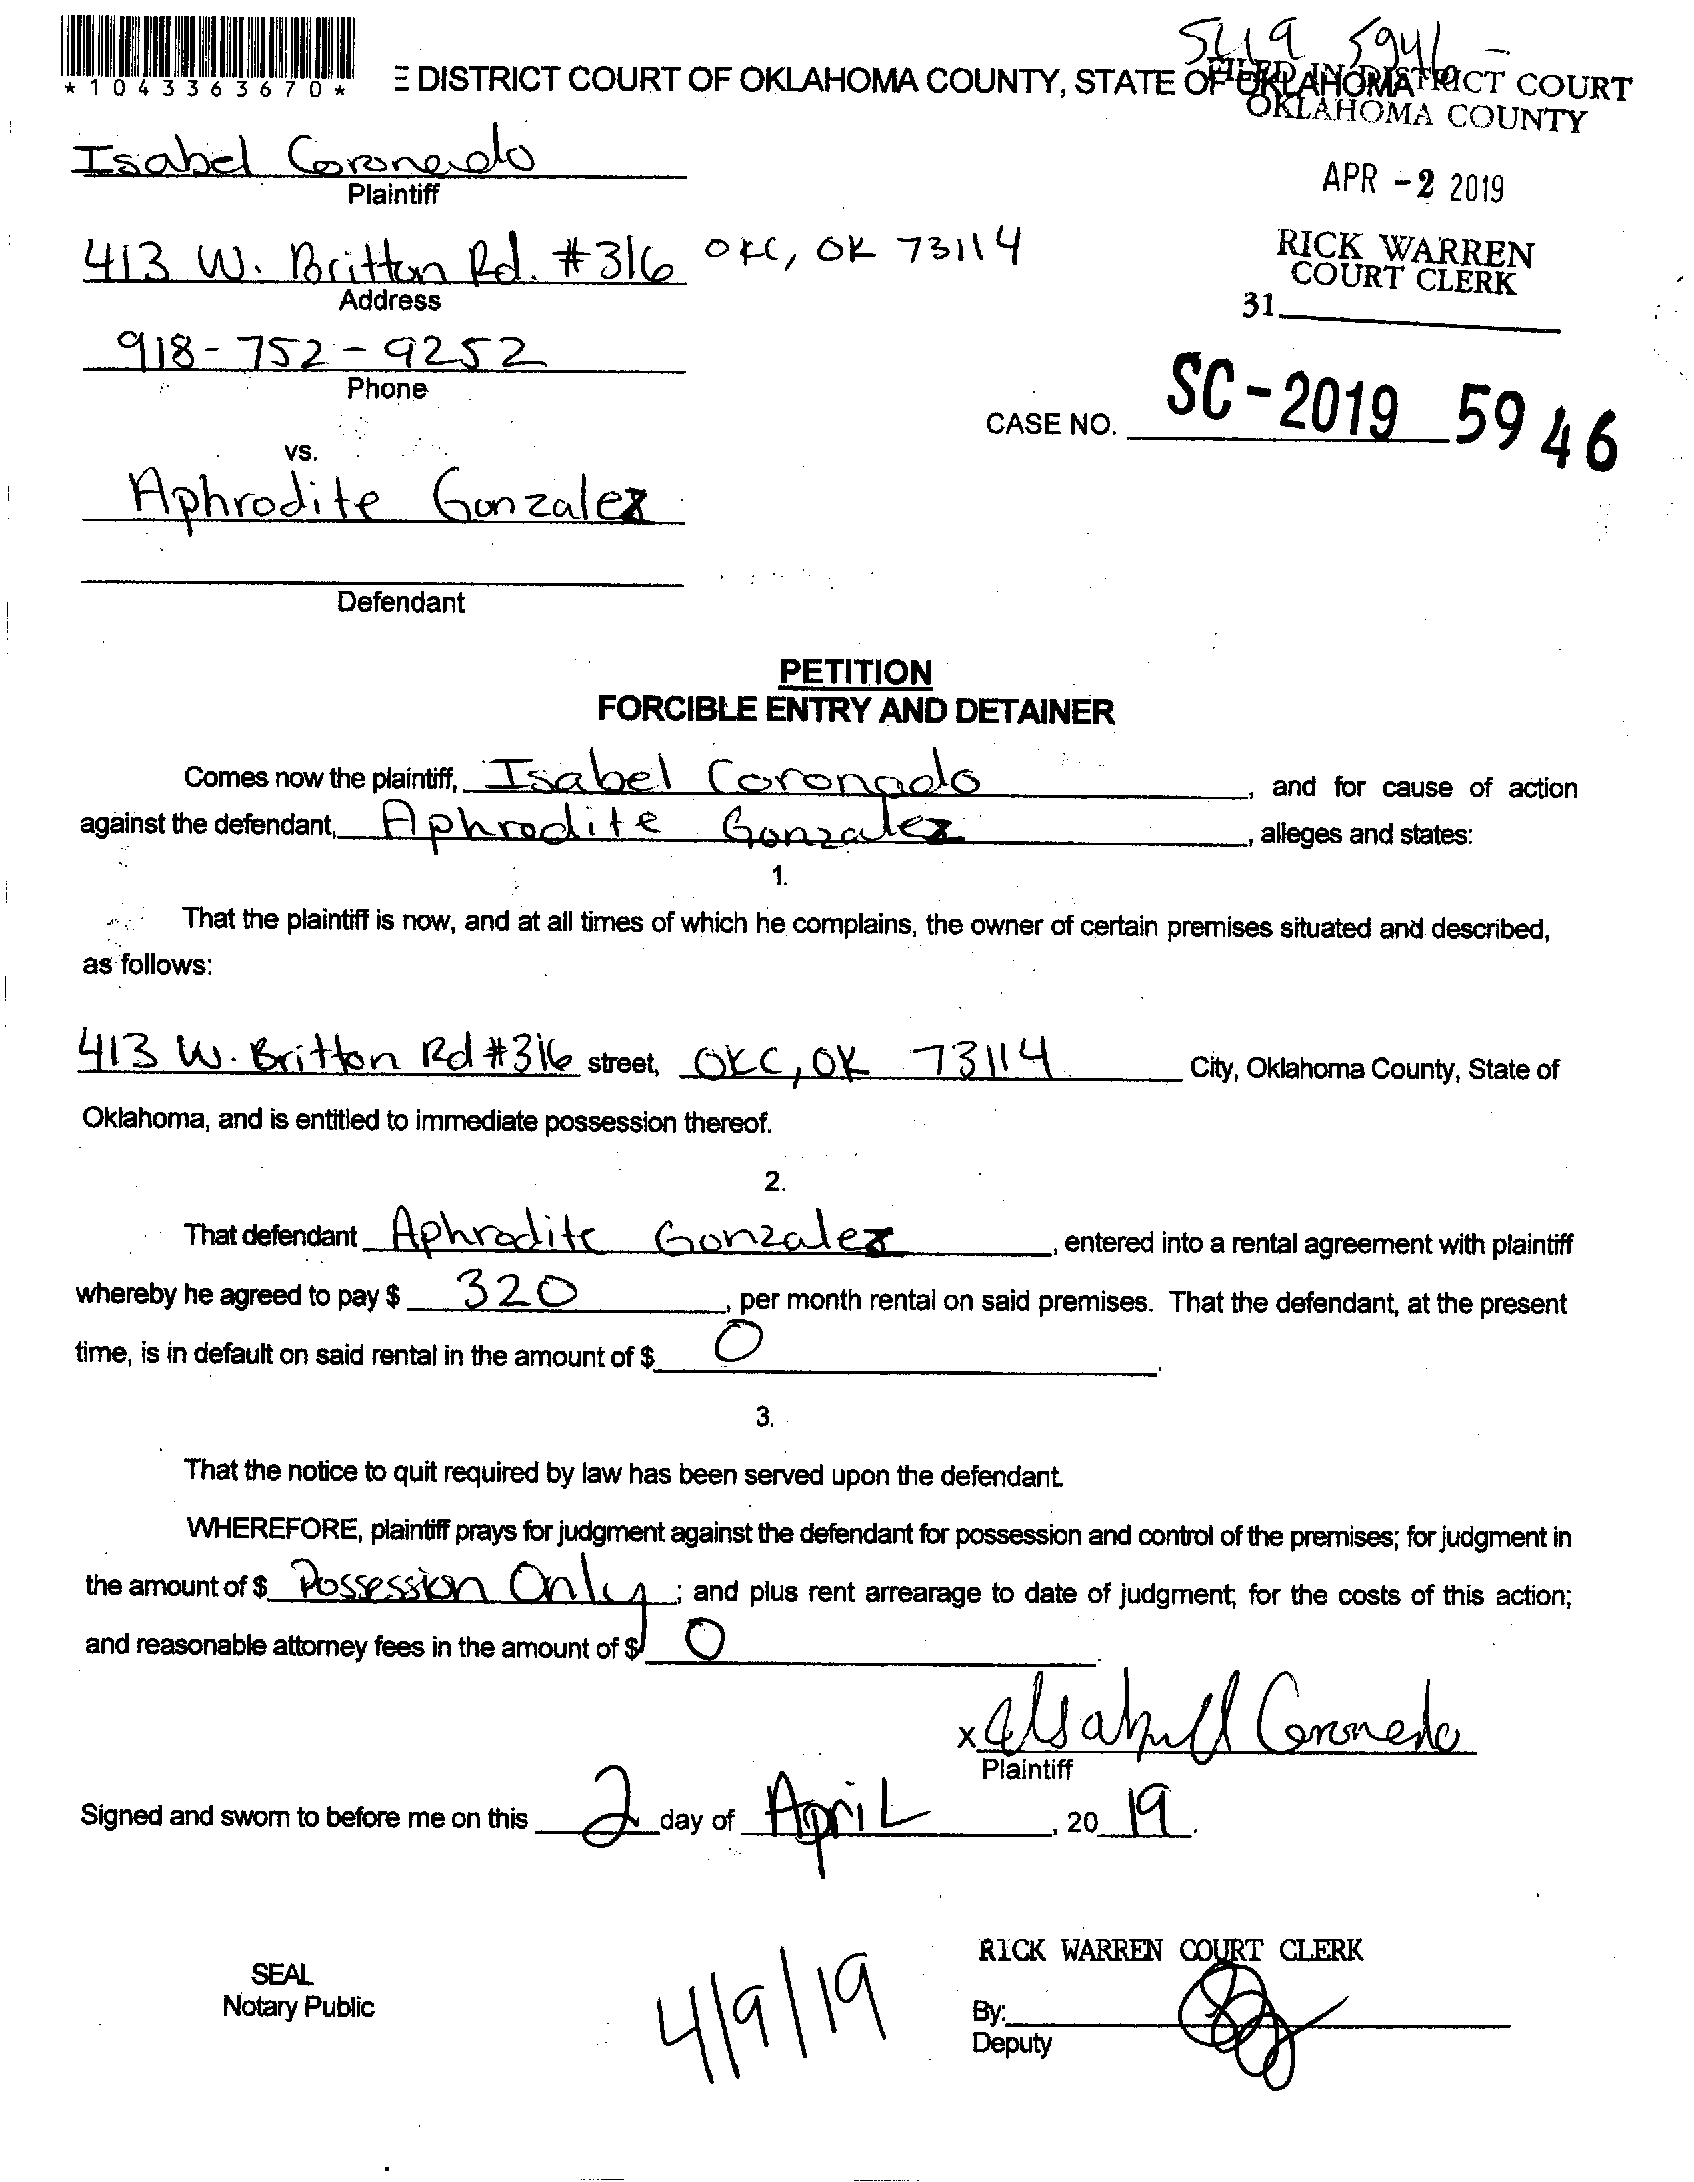 5419 5946 -
*1043363670*
E DISTRICT COURT OF OKLAHOMA COUNTY, STATE OF OKLAHOMA
FILED IN DISTRICT COURT
OKLAHOMA COUNTY
APR -2 2019
RICK WARREN
COURT CLERK
31
Isabel Coronado
Plaintiff
413 W. Britton Rd. #316 OKC, OK 73114
Address
918-752-9252
Phone
CASE NO. SC-2019 5946
vs.
Aphrodite Gonzalez
Defendant
PETITION
FORCIBLE ENTRY AND DETAINER
Comes now the plaintiff, Isabel Coronado, and for cause of action
against the defendant, Aphrodite Gonzalez, alleges and states:
1.
That the plaintiff is now, and at all times of which he complains, the owner of certain premises situated and described,
as follows:
413 W. Britton Rd #316 street, OKC, OK 73114 City, Oklahoma County, State of
Oklahoma, and is entitled to immediate possession thereof.
2.
That defendant Aphrodite Gonzalez, entered into a rental agreement with plaintiff
whereby he agreed to pay $ 320, per month rental on said premises. That the defendant, at the present
time, is in default on said rental in the amount of $ 0.
3.
That the notice to quit required by law has been served upon the defendant.
WHEREFORE, plaintiff prays for judgment against the defendant for possession and control of the premises; for judgment in
the amount of $ Possession Only; and plus rent arrearage to date of judgment; for the costs of this action;
and reasonable attorney fees in the amount of $ 0.
x Isabel Coronado
Plaintiff
Signed and sworn to before me on this 2 day of April, 2019.
RICK WARREN COURT CLERK
SEAL
Notary Public
4/9/19
By:
Deputy